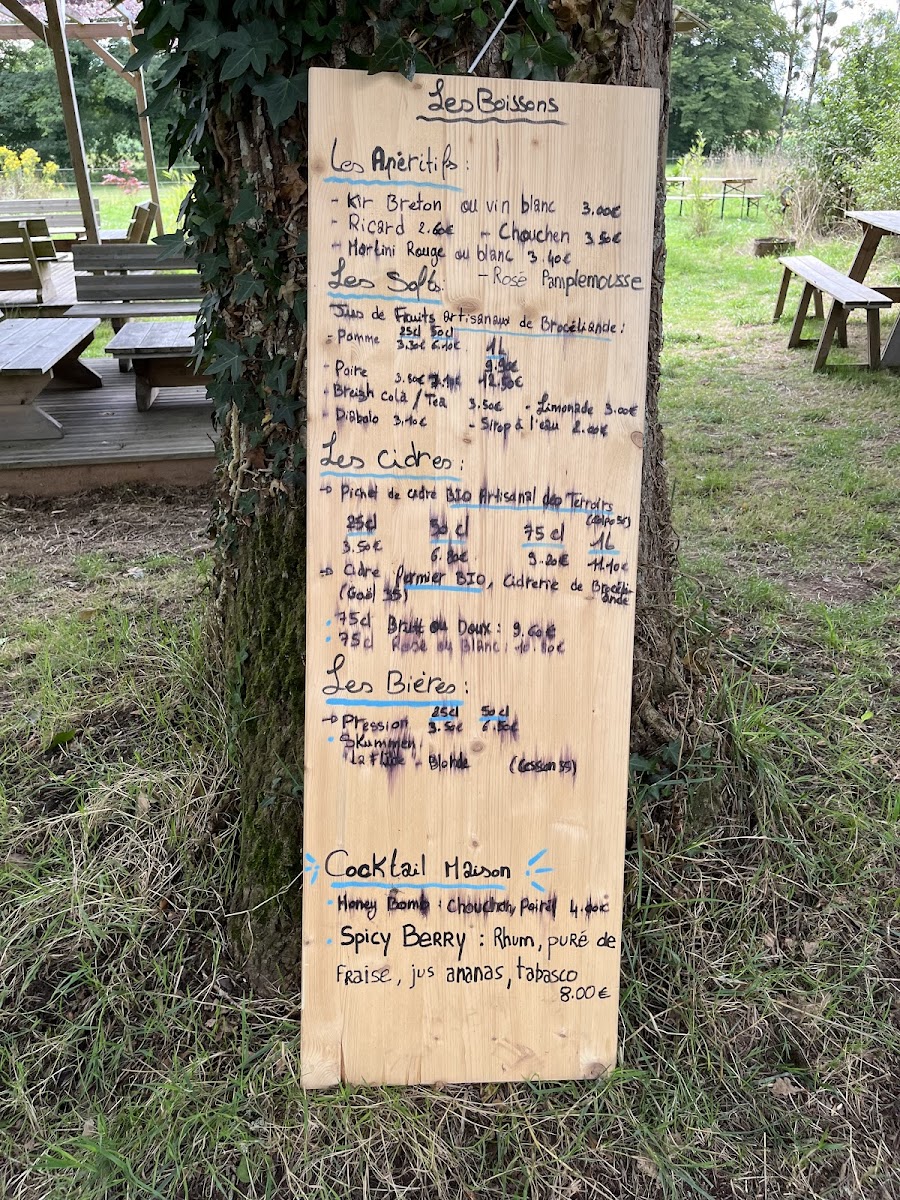 Les Boissons
Les Apéritifs :
- Kir Breton ou vin blanc 3.00€
- Ricard 2.60€ - Chouchen 3.50€
- Martini Rouge ou blanc 3.40€
Les Softs: - Rosé Pamplemousse
Jus de Fruits artisanaux de Brocéliande :
25cl 50cl 1L
- Pomme 3.30€ 6.10€ 9.90€
- Poire 3.80€ 12.50€
- Breizh cola / Tea 3.50€ - Limonade 3.00€
Diabolo 3,10€ - Sirop à l'eau 2.00€
Les Cidres :
→ Pichet de cidre BIO Artisanal des Terroirs
25cl 50 cl 75 cl 1L
3.50€ 6.80€ 9.20€ 11.10€
→ Cidre Fermier BIO, Cidrerie de Brocéliande
(Gaël 35)
75cl Brut ou Doux : 9.60€
75cl Rosé ou Blanc: 10.80€
Les Bières :
25cl 50cl
→ Pression 3.50€ 6.50€
Skummen
- Blonde (Cesson 35)
Cocktail Maison
Honey Bomb : Chouchen, Poiré 4.00€
Spicy BERRY : Rhum, puré de
Fraise, jus ananas, tabasco
8.00€